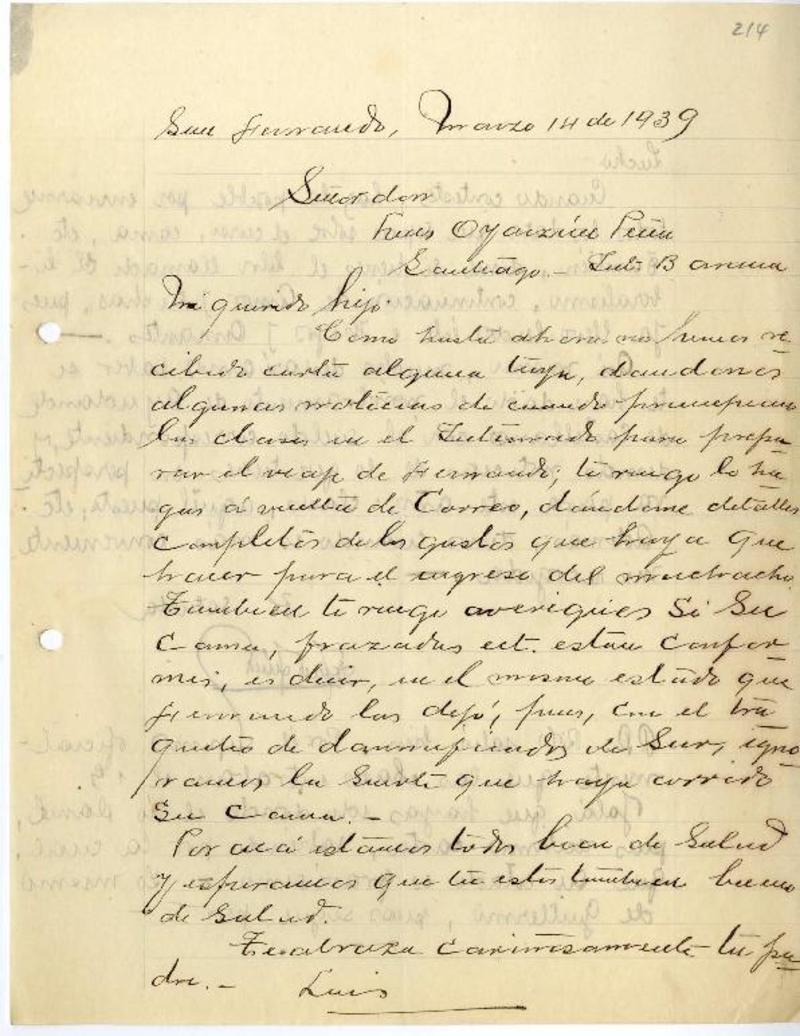 214
San Fernando, Marzo 14 de 1939
Señor don
Luis Oyarzún Peña
Santiago.- Int. Barana
Mi querido hijo:
Como hasta ahora no hemos re-
cibido carta alguna tuya, dandonos
algunas noticias de cuando principian
las clases en el Internado para prepa-
rar el viaje de Fernando; te ruego lo ha-
gas á vuelta de Correo, dándome detalles
completos de los gastos que haya que
hacer para el ingreso del muchacho.
Tambien te ruego averigües si su
cama, frazadas ect. estan confor-
mes, es decir, en el mismo estado que
Fernando las dejó, pues, con el tra-
queteo de damnificados de Sur, igno-
ramos la suerte que haya corrido
su cama.-
Por acá estamos todos bien de salud
y esperamos que tu estes tambien bueno
de salud.
Te abraza cariñosamente tu pa-
dre.- Luis